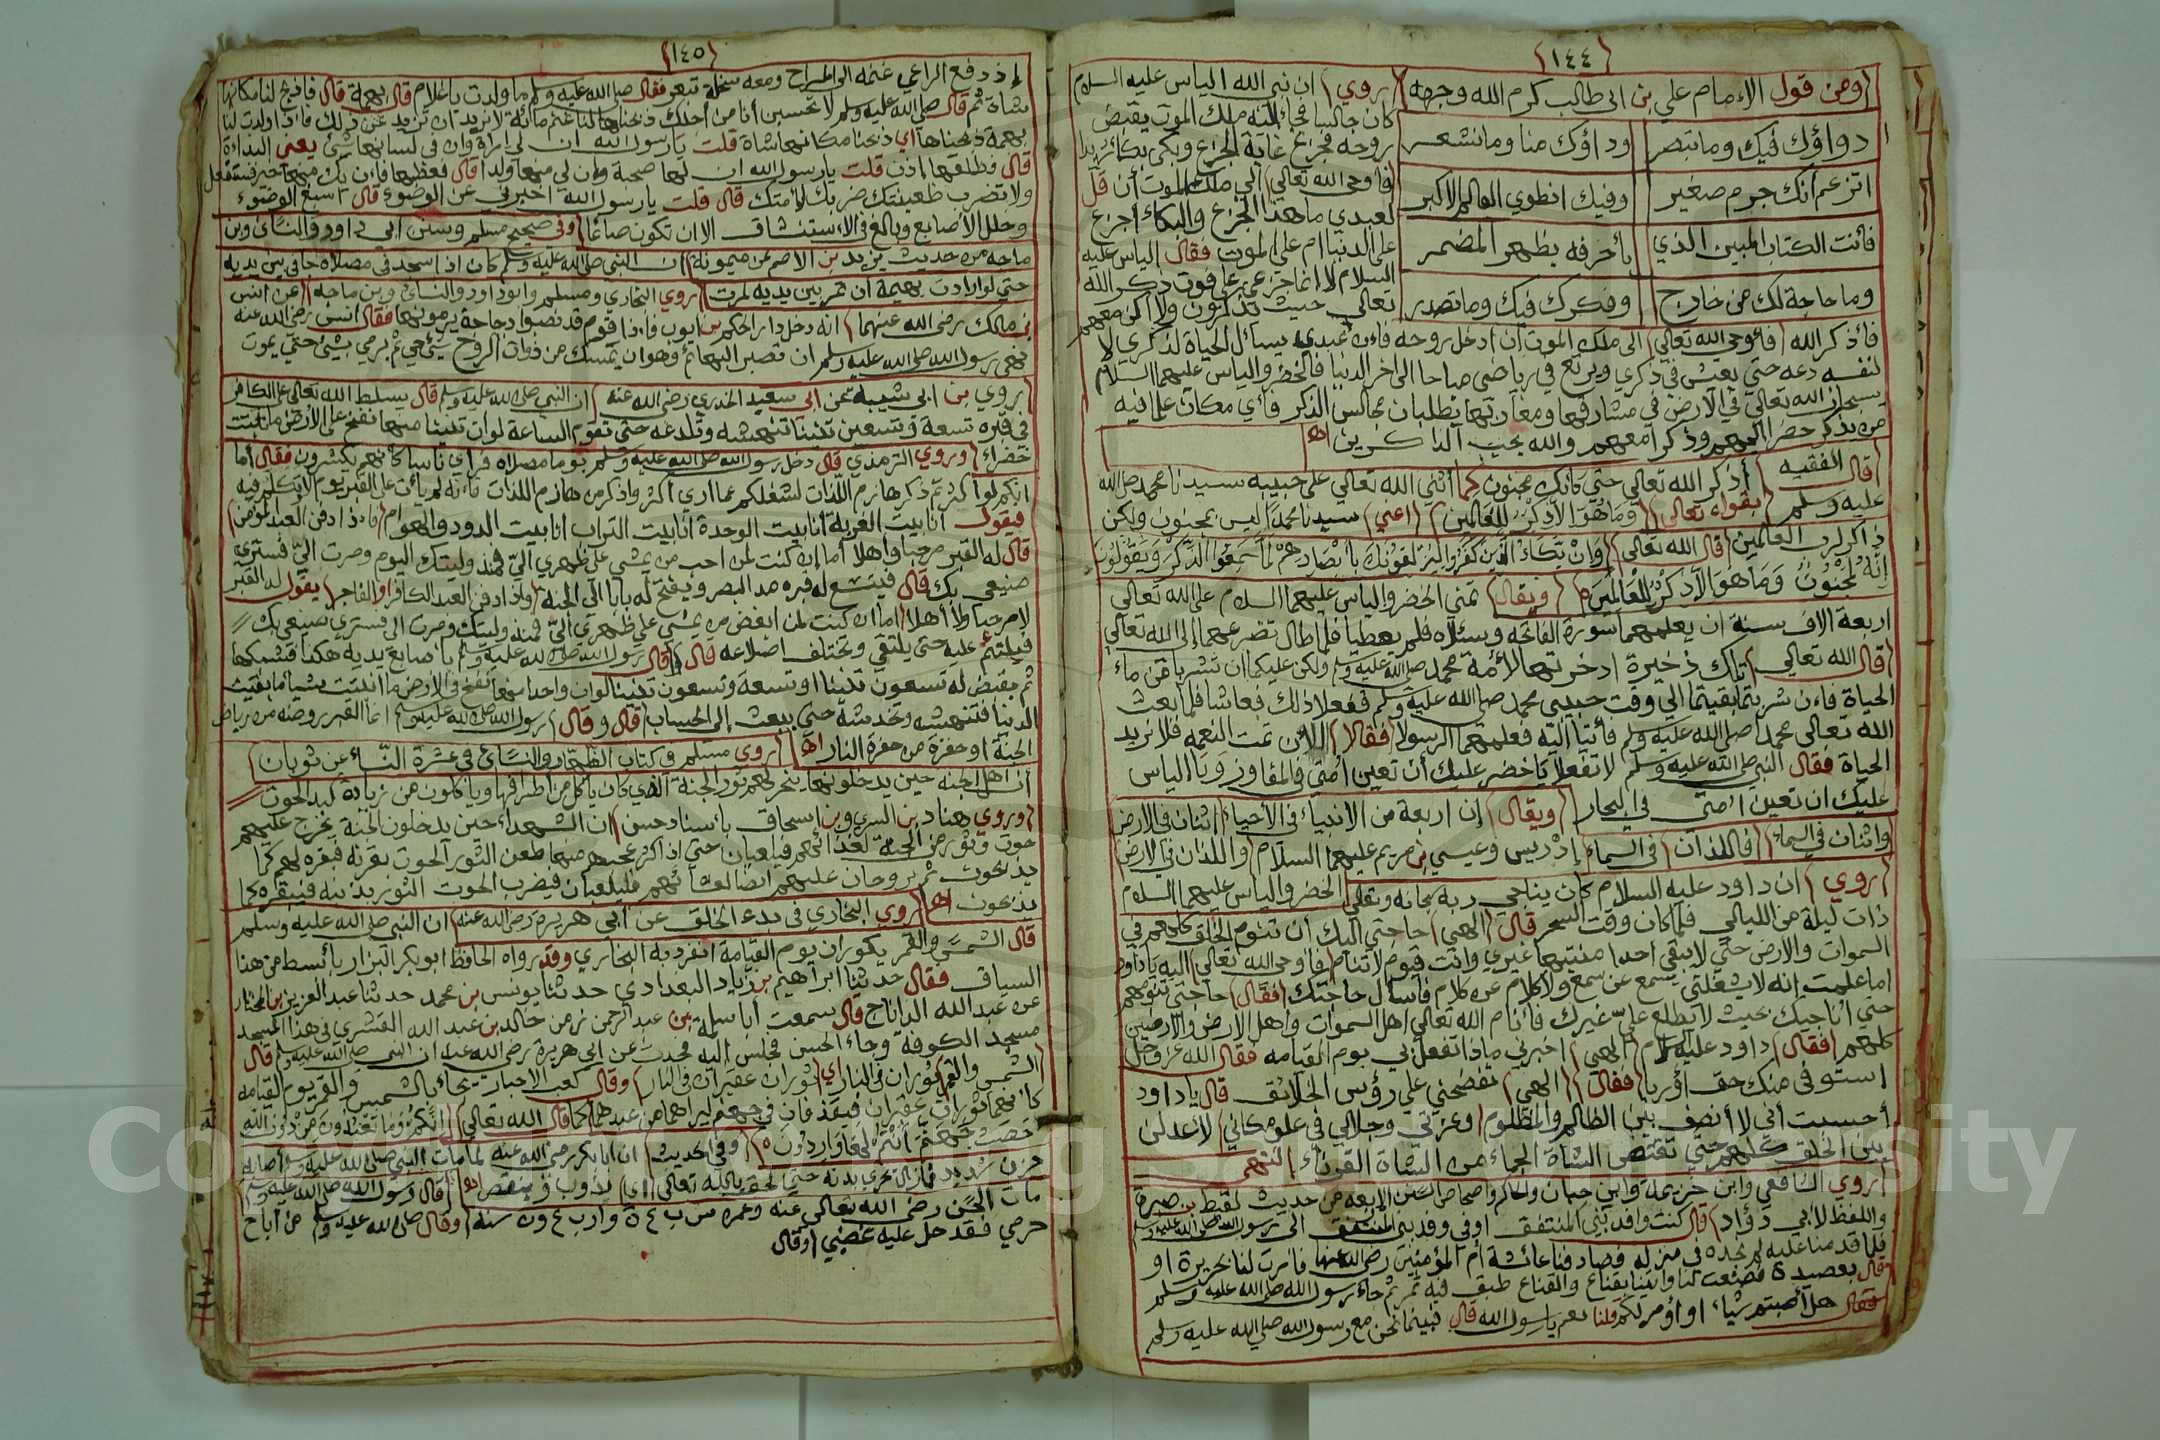 ﴿١٤٤﴾
ومن قول الامام علي بن ابي طالب كرم الله وجهه
دواؤك فيك وما تبصر وداؤك منا وما تشعر
اتزعم أنك جرم صغير وفيك انطوي العالم الاكبر
فأنت الكتاب المبين الذي بأحرفه يظهر المضمر
وما حاجة لك من خارج وفكرك فيك وما تصدر
روي ان نبي الله الياس عليه السلام
كان جالسا فجاء اليه ملك الموت يقبض
روحه فجزع غاية الجزع وبكى بكاء
فاوحى الله تعالي الي ملك الموت أن قل
لعبدي ما هذا الجزع والبكاء أجزع
على الدنيا ام على الموت فقال الياس عليه
السلام لا انما جزعي على فوت ذكر الله
تعالي حيث تذكرون ولا اكن معهم
فأذكر الله فأوحى الله تعالي الى ملك الموت ان ادخل روحه فاءن عبدي يسأل الحياة لذكري لا
لنفسه دعه حتي يعيش في ذكري ويرتع في رياضي صباحا الى اخر الدنيا فالخضر والياس عليهما السلام
يسيحان الله تعالي في الارض في مشارقها ومغاربها يطلبان مجالس الذكر فأي مكان علما فيه
من يذكر حضرا اليهم وذكرا معهم والله يحب الذاكرين اھ
قال الفقيه أذكر الله تعالي حتي كأنك مجنون كما أثني الله تعالي على حبيبه سيدنا محمد صلى الله
عليه وسلم بقوله تعالي وَمَا هُوَ الاَّ ذِكْرٌ لِلْعَالَمِينَ اعني سيدنا محمدًا ليس بمجنون ولكن
ذاكر لرب العالمين قال الله تعالي وَانْ يَكَادُ الَّذِينَ كَفَرُوا لَيُزْلِقُونَكَ بِأَبْصَارِهِمْ لَمَّا سَمِعُوا الذِّكْرَ وَيَقُولُونَ
اِنَّهُ لَمَجْنُونٌ وَمَا هُوَ الاَّ ذِكْرٌ لِلْعَالَمِينَ ويقال تمني الخضر والياس عليهما السلام على الله تعالي
اربعة الاف سنة ان يعلمهما سورة الفاتحه ويسئلاه فلم يعطيا فلما طال تضرعهما الى الله تعالي
قال الله تعالي تلك ذخيرة ادخرتها لأمة محمد صلى الله عليه وسلم ولكن عليكما ان تشربا من ماء
الحياة فاءن شربتما بقيتما الي وقت حبيبي محمد صلى الله عليه وسلم ففعلا ذلك فعاشا فلما بعث
الله تعالى محمدا صلى الله عليه وسلم فأتيا اليه فعلمهما الرسول فقالا اللأن تمت النعمه فلا نريد
الحياة فقال النبي صلى الله عليه وسلم لا تفعلا يا خضر عليك أن تعين أمتي في المفاوز ويا الياس
عليك ان تعين امتي في البحار ويقال إن اربعة من الانبياء في الأحياء اثنان في الارض
واثنان في السماء فاللذان في السماء إدريس وعيسي بن مريم عليهما السلام واللذان في الارض
الخضر والياس عليهما السلام
روي ان داود عليه السلام كان يناجي ربه سبحانه وتعالي
ذات ليلة من الليالي فلما كان وقت السحر قال الهي حاجتي اليك أن تنوم الخلق كلهم في
السموات والارض حتي لا يبقي احدا منتبها غيري وانت قيوم لا تنام فاوحى الله تعالي اليه يا داود
اما علمت انه لا يشغلني سمع عن سمع ولا كلام عن كلام فاسأل حاجتك فقال حاجتي تنومهم
حتي أناجيك بحيث لا يطلع علي غيرك فأنام الله تعالي اهل السموات واهل الارض والارضين
كلهم فقال داود عليه السلام الهي اخبرني ماذا تفعل بي يوم القيامه فقال الله عز وجل
استوفى منك حق اؤريا فقال الهي تفضحني علي رؤس الخلائق قال يا داود
أحسبت أني لا أنصف بين الظالم والمظلوم وعزتي وجلالي في علو مكاني لأعدلن
بين الخلق كلهم حتي تقتص الشاة الجماء من الشاة القرناء انتهى
روي الشافعي وابن خزيمة وابن حبان والحاكم واصحاب السنن الاربعه من حديث لقيط بن صبرة
واللفظ لأبي دؤاد قال كنت وافد بني المنتفق اوفي وفد بني المنتفق الى رسول الله صلى الله عليه وسلم
فلما قدمنا عليه لم نجده في منزله فصادفنا عائشة أم المؤمنين رضي الله عنها فامرت لنا بخزيرة او
قال بعصيدة فصنعت لنا واتينا بقناع والقناع طبق فيه تمر ثم جاء رسول الله صلى الله عليه وسلم
فقال هل أصبتم شياء او اؤمر لكم قلنا نعم يا رسول الله قال فبينما نحن مع رسول الله صلى الله عليه وسلم
﴿١٤٥﴾
إذ دفع الراعي غنمه الى المراح ومعه سخلة تيعر فقال صلى الله عليه وسلم ما ولدت يا غلام قال بهمة قال فاذبح لنا مكانها
شاة ثم قال صلى الله عليه وسلم لا تحسبن أنا من أجلك ذبحناها لنا غنم مائة لا نريد ان تزيد عن ذلك فاذا ولدت لنا
بهمة ذبحناها اي ذبحنا مكانها شاة قلت يا رسول الله ان لي امرأة وان في لسانها شئ يعني البذاءة
قال فطلقها اذن قلت يا رسول الله ان لها صحبة وان لي منها ولدا قال فعظها فاءن يك منها خير فستفعل
ولا تضرب ظعينتك ضربك لأمتك قال قلت يا رسول الله اخبرني عن الوضوء قال اسبغ الوضوء
وخلل الأصابع وبالغ في الاستنشاق الا ان تكون صائما وفي صحيح مسلم وسنن ابى داود والنسائ وبن
ماجه من حديث يزيد بن الاصم عن ميمونة ان النبي صلى الله عليه وسلم كان اذا سجد في مصلاه جافى بين يديه
حتي لو ارادت بهيمة ان تمر بين يديه لمرت روي البخاري ومسلم وابوداود والنسائ وبن ماجه عن انس
بن مالك رضى الله عنهما انه دخل دار الحكم بن ايوب فاءذا قوم قد نصبوا دجاجة يرمونها فقال انس رضى الله عنه
نهى رسول الله صلى الله عليه وسلم ان تصبر البهائم وهو ان يمسك من ذوات الروح شئ حي ثم يرمي بشئ حتي يموت
روي بن ابي شيبة عن ابي سعيد الخدري رضى الله عنه ان النبي صلى الله عليه وسلم قال يسلط الله تعالى على الكافر
في قبره تسعة وتسعين تنينا تنهشه وتلدغه حتي تقوم الساعة لو ان تنينا منها نفخ على الارض ما نبتت
خضراء وروي الترمذي قال دخل رسول الله صلى الله عليه وسلم يوما مصلاه فراي ناسا كانهم يكشرون فقال أما
انكم لو اكثرتم ذكر هازم اللذات لشغلكم عما ارى اكثروا ذكر من هازم اللذات فاءنه لم يأت على القبر يوم الا تكلم فيه
فيقول أنا بيت الغربة أنا بيت الوحدة أنا بيت التراب انا بيت الدود والهوام فاءذا دفن العبد المؤمن
قال له القبر مرحبا واهلا أما إن كنت لمن احب من يمشي على ظهري الّي فمنذ وليتك اليوم وصرت الّي فستري
صنيعي بك قال فيتسع له قبره مد البصر ويفتح له بابا الى الجنة واذا دفن العبد الكافر او الفاجر يقول له القبر
لا مرحبا ولا أهلا اما ان كنت لمن ابغض من يمشي على ظهري الّي فمنذ وليتك وصرت الى فستري صنيعي بك
فيلتئم عليه حتي يلتقي وتختلف اضلاعه قال قال رسول الله صلى الله عليه وسلم بأصابع يديه هكذا فشبكها
ثم يقبض له تسعون تنينا او تسعة وتسعون تنينا لو ان واحدا منها نفخ في الارض ما انبتت شيأ ما بقيت
الدنيا فتنهشه وتخدشه حتي يبعث إلى الحساب قال وقال رسول الله صلى الله عليه وسلم انما القبر روضه من رياض
الجنة او حفرة من حفرة النار اھ روي مسلم في كتاب الطهارة والنسائ في عشرة النساء عن ثوبان
أن اهل الجنة حين يدخلونها ينحر لهم ثور الجنة الذي كان يأكل من أطرافها ويأكلون من زيادة كبد الحوت
وروي هناد بن السري وبن اسحاق بأسناد حسن ان الشهداء حين يدخلون الجنة يخرج عليهم
حوت وثور من الجنة لغدائهم فيلعبان حتي اذا كثر عجبهم منهما طعن الثور الحوت بقرنه فبقره لهم كما
يذبحون ثم يروحان عليهم ايضا لعشائهم فيلعبان فيضرب الحوت الثور بذنبه فيبقره كما
يذبحون اھ روي البخاري في بدء الخلق عن أبي هريرة رضى الله عنه ان النبي صلى الله عليه وسلم
قال الشمس والقمر يكوران يوم القيامة انفرد به البخاري وقد رواه الحافظ ابوبكر البزار بأبسط من هذا
السياق فقال حدثنا ابراهيم بن زياد البغدادي حدثنا يونس بن محمد حدثنا عبد العزيز بن المختار
عن عبدالله الداناج قال سمعت أبا سلمة بن عبد الرحمن زمن خالد بن عبد الله القشري في هذا المسجد
مسجد الكوفة وجاء الحسن فجلس اليه فحدث عن ابي هريرة رضى الله عنه ان النبي صلى الله عليه وسلم قال
الشمس والقمر ثوران في النار اي ثوران عقيران في النار وقال كعب الاحبار يجاء بالشمس والقمر يوم القيامه
كانهما ثوران عقيران فيقذفان في جهنم ليراهما من عبدهما كما قال الله تعالي إِنَّكُمْ وَمَا تَعْبُدُونَ مِنْ دُونِ اللهِ
حَصَبُ جَهَنَّمَ أَنْتُمْ لَهَا وَارِدُونَ وفي الحديث ان ابابكر رضى الله عنه لما مات النبي صلى الله عليه وسلم اصابه
حزن شديد فمازال يحري بدنه حتي لحق بالله تعالي اي يذوب وينقص اھ قال رسول الله صلى الله عليه وسلم
مات الحسن رضى الله تعالى عنه وعمره س ب ع ة وارب ع ون سنة وقال صلى الله عليه وسلم من أباح
حرمي فقد حل عليه غضبي وقال